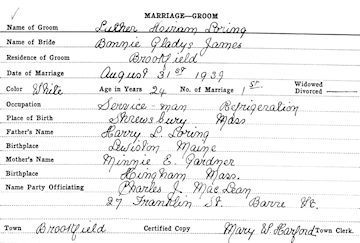 MARRIAGE—GROOM
Name of Groom Luther Hoiram Loring
Name of Bride Bonnie Gladys James
Residence of Groom Brookfield
Date of Marriage August 31st 1939
Color White Age in Years 24 No. of Marriage 1st. Widowed Divorced
Occupation Service-man Refrigeration
Place of Birth Shrewsbury Mass
Father's Name Harry L. Loring
Birthplace Lewiston Maine
Mother's Name Minnie E. Gardner
Birthplace Hingham Mass.
Name Party Officiating Charles J. MacLean
27 Franklin St. Barre Vt.
Town Brookfield Certified Copy Mary W Harford Town Clerk.